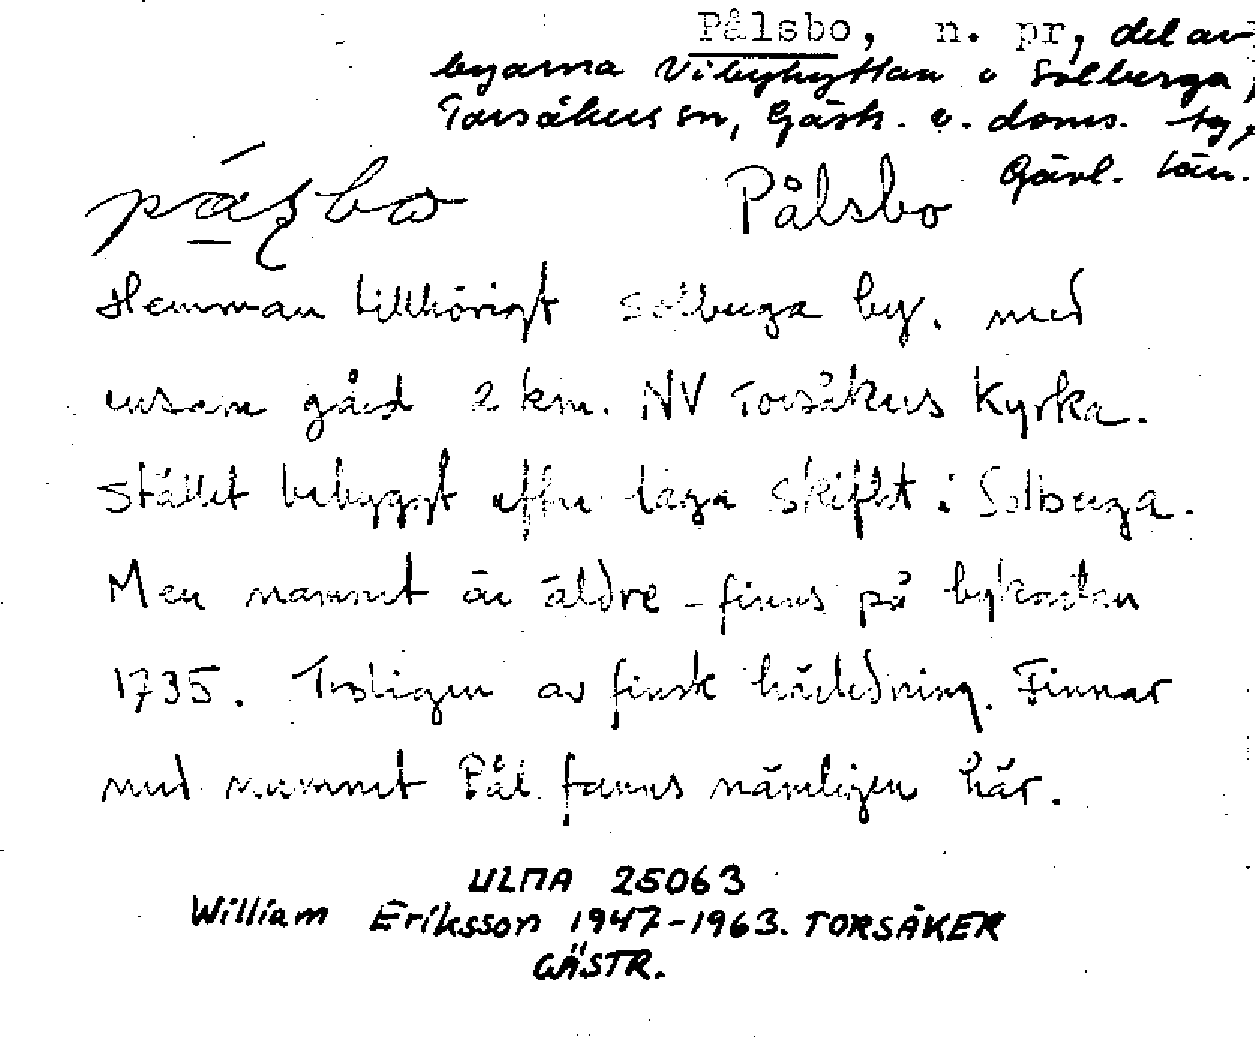 Pålsbo, n. pr, del av
byarna Vibyhyttan o Solberga,
Torsåkers sn, Gästr. ö. doms. tg,
Gävl. län.
påsbo Pålsbo
Hemman tillhörigt Solberga by. med
ensam gård 2 km. NV Torsåkers Kyrka.
Stället bebyggt efter laga skiftet i Solberga.
Men namnet är äldre - finns på bykartan
1735. Troligen av finsk härledning. Finnar
med namnet Pål fanns nämligen här.
ULMA 25063
William Eriksson 1947-1963. TORSÅKER
GÄSTR.